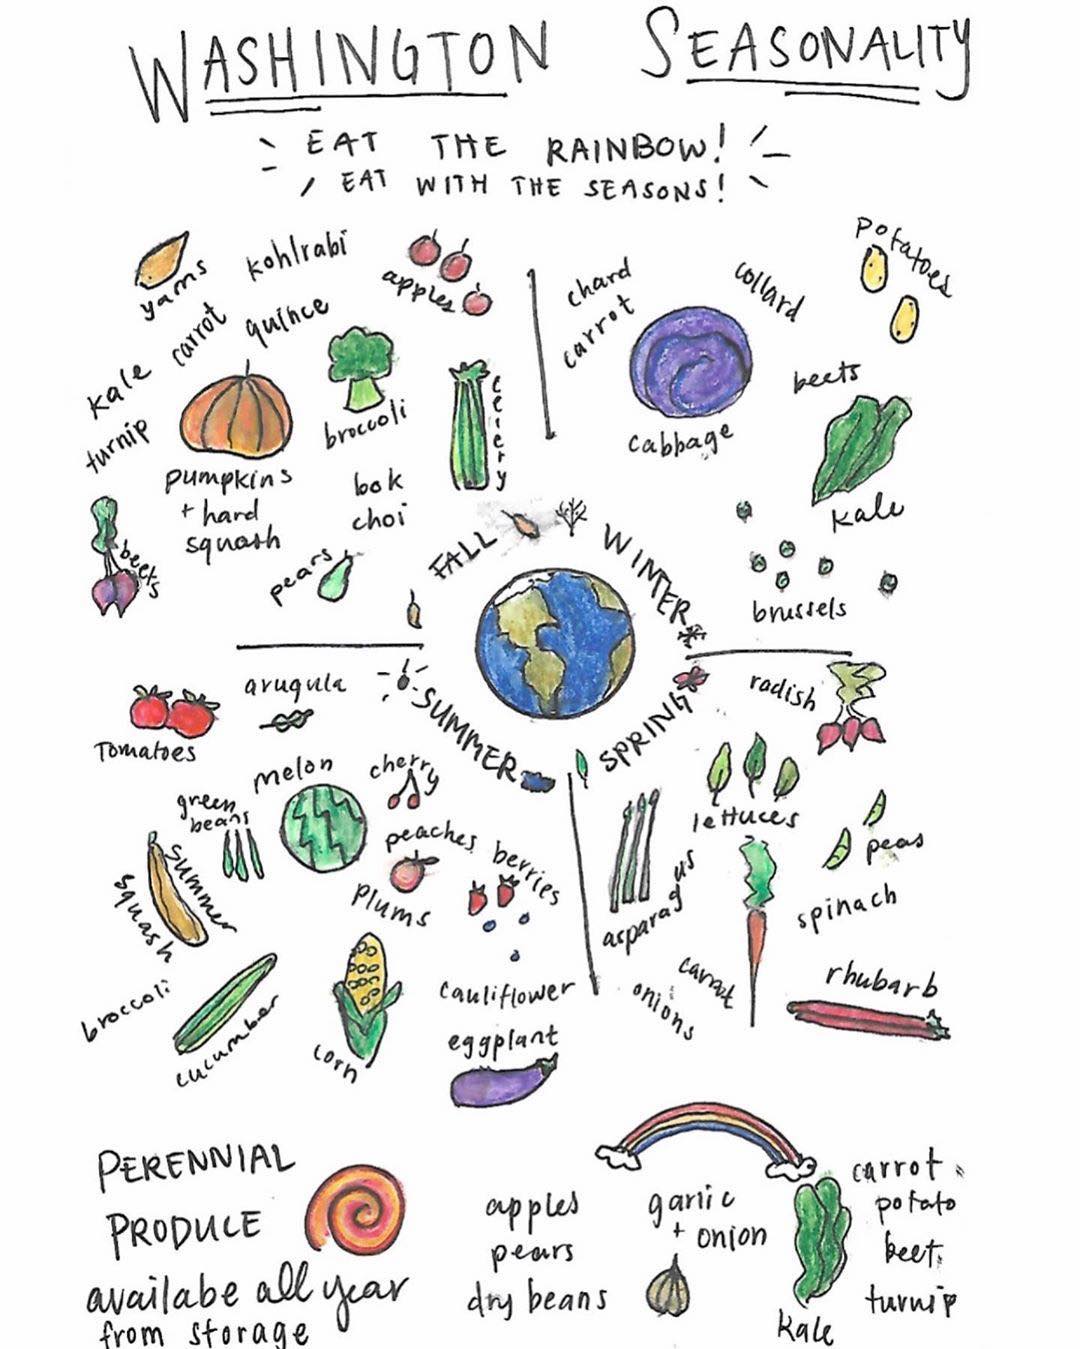 WASHINGTON SEASONALITY
EAT THE RAINBOW!
EAT WITH THE SEASONS!
yams
kohlrabi
apples
carrot
quince
kale
turnip
broccoli
celery
pumpkins
+ hard
squash
bok
choi
beets
pears
FALL
chard
carrot
collard
potatoes
cabbage
beets
kale
brussels
WINTER
arugula
Tomatoes
melon
cherry
green
beans
peaches
plums
berries
summer
squash
broccoli
cucumber
corn
cauliflower
eggplant
SUMMER
SPRING
radish
lettuces
peas
asparagus
spinach
carrot
onions
rhubarb
PERENNIAL
PRODUCE
availabe all year
from storage
apples
pears
dry beans
garlic
+ onion
kale
carrot
potato
beet
turnip